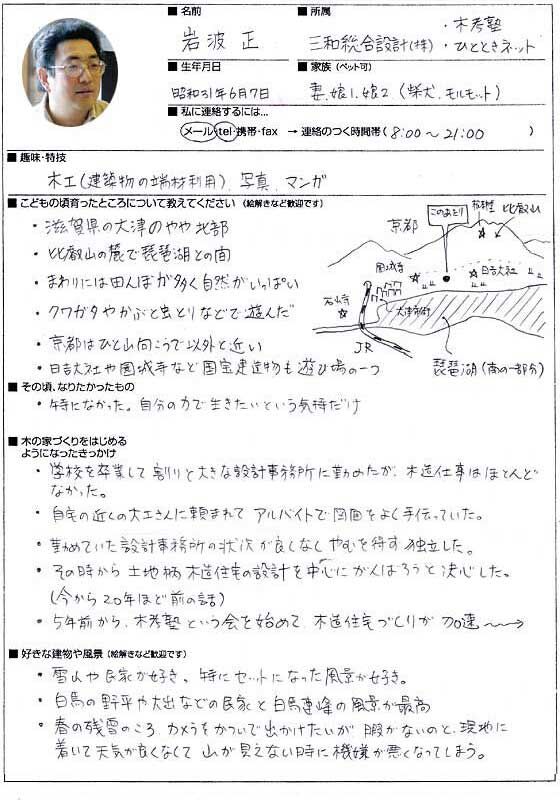 ■ 名前
岩波 正
■ 所属
・木考塾
三和総合設計(株)・ひとときネット
■ 生年月日
昭和31年6月7日
■ 家族 (ペット可)
妻、娘1、娘2、(柴犬、モルモット)
■ 私に連絡するには…
メール・tel・携帯・fax → 連絡のつく時間帯 ( 8:00 〜 21:00 )
■ 趣味・特技
木工(建築物の端材利用)、写真、マンガ
■ こどもの頃育ったところについて教えてください (絵解きなど歓迎です)
・滋賀県の大津のやや北部
・比叡山の麓で琵琶湖との間
・まわりには田んぼが多く自然がいっぱい
・クワガタやかぶと虫とりなどで遊んだ
・京都はひと山向こうで以外と近い
・日吉大社や園城寺など国宝建造物も遊び場の一つ
京都
このあたり
比叡山
園城寺
日吉大社
石山寺
大津市街
JR
琵琶湖(南の一部分)
■ その頃、なりたかったもの
・特になかった。自分の力で生きたいという気持だけ
■ 木の家づくりをはじめる
ようになったきっかけ
・学校を卒業して割りと大きな設計事務所に勤めたが、木造仕事はほとんど
なかった。
・自宅の近くの大工さんに頼まれてアルバイトで図面をよく手伝っていた。
・勤めていた設計事務所の状況が良くなくやむを得ず独立した。
・その時から土地柄木造住宅の設計を中心にがんばろうと決心した。
(今から20年ほど前の話)
・5年前から、木考塾という会を始めて、木造住宅づくりが加速〜〜→
■ 好きな建物や風景 (絵解きなど歓迎です)
・雪山や民家が好き。特にセットになった風景が好き。
・白馬の野平や大出などの民家と白馬連峰の風景が最高
・春の残雪のころ、カメラをかついで出かけたいが暇がないのと、現地に
着いて天気が良くなくて山が見えない時に機嫌が悪くなってしまう。